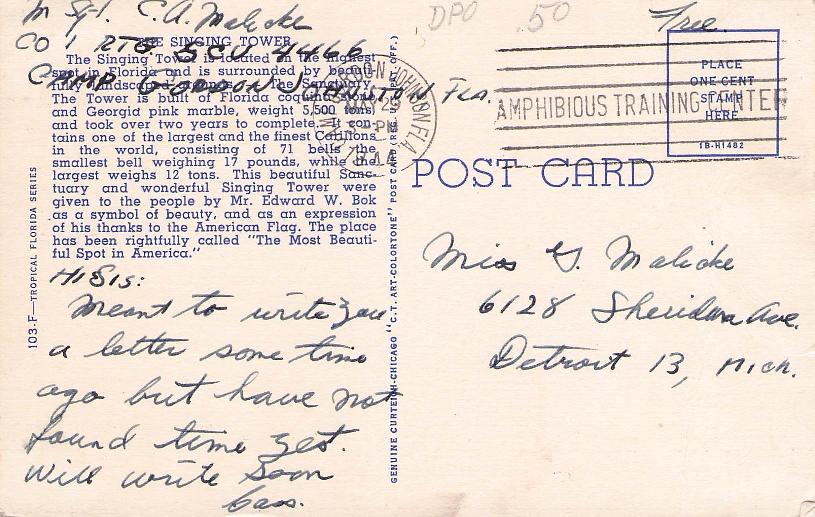 M Sgt. C.A. Malicke
CO 1 RTG SCU 4466
CAMP GORDON JOHNSTON FLA.
DPO .50
Free
THE SINGING TOWER
The Singing Tower is located on the highest
spot in Florida and is surrounded by beauti-
fully landscaped The Sanctuary.
The Tower is built of Florida coquina stone
and Georgia pink marble, weight 5,500 tons,
and took over two years to complete. It con-
tains one of the largest and the finest Carillons
in the world, consisting of 71 bells the
smallest bell weighing 17 pounds, while the
largest weighs 12 tons. This beautiful Sanc-
tuary and wonderful Singing Tower were
given to the people by Mr. Edward W. Bok
as a symbol of beauty, and as an expression
of his thanks to the American Flag. The place
has been rightfully called "The Most Beauti-
ful Spot in America."
103-F—TROPICAL FLORIDA SERIES
Hi Sis:
Meant to write you
a letter some time
ago but have not
found time yet.
Will write soon
Cass.
GENUINE CURTEICH-CHICAGO "C.T. ART-COLORTONE" POST CARD (REG. U.S. PAT. OFF.)
GORDON JOHNSTON, FLA.
MAY 25
PM
AMPHIBIOUS TRAINING CENTER
PLACE
ONE CENT
STAMP
HERE
1B-H1482
POST CARD
Miss G. Malicke
6128 Sheridan Ave.
Detroit 13, Mich.